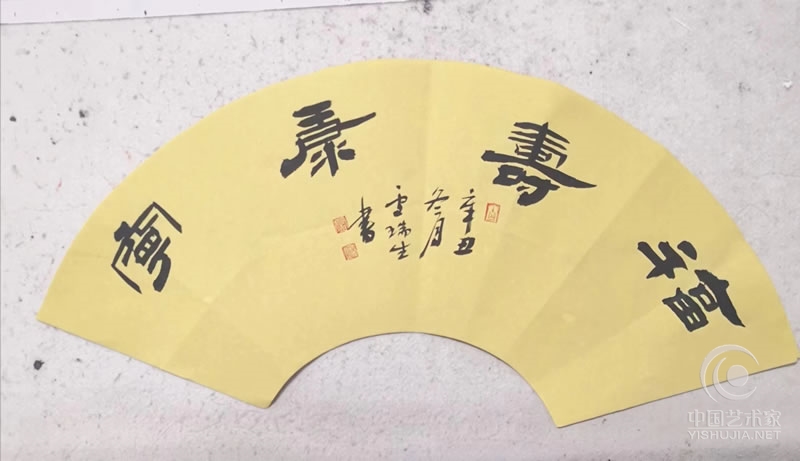 福壽康寧
辛丑
冬月
雪瑞生
書
中国艺术家
YISHUJIA.NET